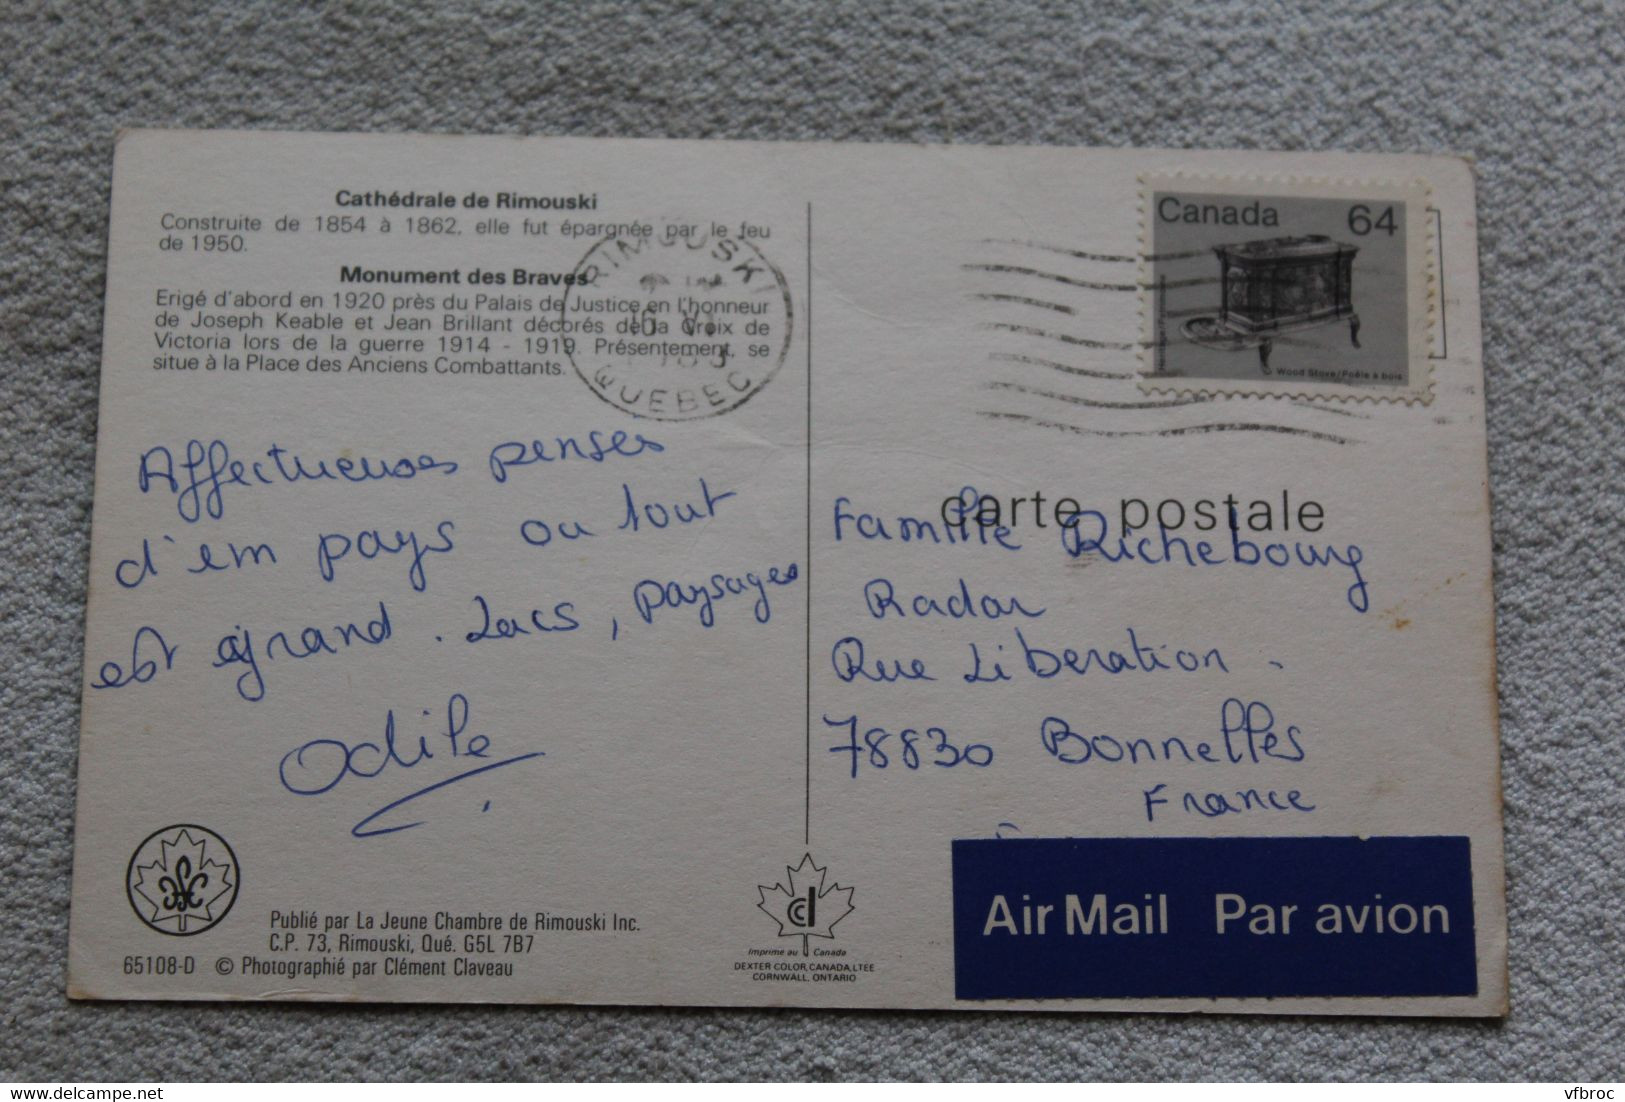 Cathédrale de Rimouski
Construite de 1854 à 1862, elle fut épargnée par le feu
de 1950.
Monument des Braves
Erigé d'abord en 1920 près du Palais de Justice en l'honneur
de Joseph Keable et Jean Brillant décorés de la Croix de
Victoria lors de la guerre 1914 - 1919. Présentement, se
situe à la Place des Anciens Combattants.
RIMOUSKI
16 VI
QUEBEC
Canada 64
Wood Stove/Poêle à bois
Affectueuses penses
d'em pays ou tout
est grand. Lacs, paysages
Odile
carte postale
Famille Richebourg
Radar
Rue Liberation.
78830 Bonnelles
France
Air Mail Par avion
Publié par La Jeune Chambre de Rimouski Inc.
C.P. 73, Rimouski, Qué. G5L 7B7
65108-D © Photographié par Clément Claveau
Imprimé au Canada
DEXTER COLOR, CANADA, LTEE
CORNWALL, ONTARIO
vfbroc